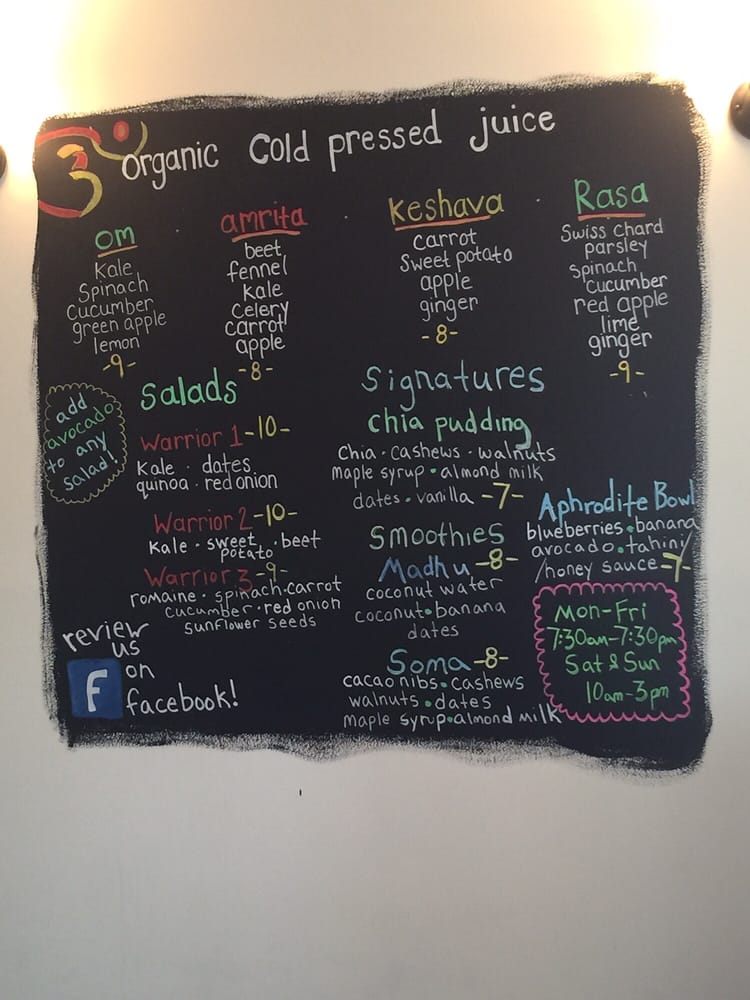 organic cold pressed juice
om
Kale
Spinach
Cucumber
green apple
lemon
-9-
amrita
beet
fennel
Kale
Celery
carrot
apple
-8-
Keshava
Carrot
Sweet potato
apple
ginger
-8-
Rasa
Swiss chard
parsley
Spinach
cucumber
red apple
lime
ginger
-9-
add
avocado
to any
salad!
Salads
Warrior 1 -10-
Kale · dates
quinoa · red onion
Warrior 2 -10-
Kale · sweet potato · beet
Warrior 3 -9-
romaine · spinach · carrot
cucumber · red onion
sunflower seeds
Signatures
chia pudding
Chia · cashews · walnuts
maple syrup · almond milk
dates · vanilla -7-
Smoothies
Madhu -8-
coconut water
coconut · banana
dates
Soma -8-
cacao nibs · cashews
walnuts · dates
maple syrup · almond milk
Aphrodite Bowl
blueberries · banana
avocado · tahini/
/honey sauce -7-
Mon-Fri
7:30am-7:30pm
Sat & Sun
10am-3pm
review
us
f on
facebook!